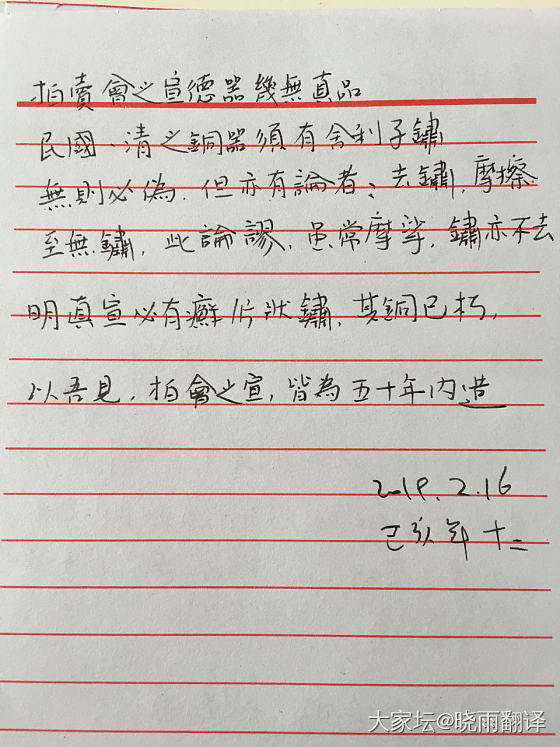 拍賣會之宣德器幾無真品
民國、清之銅器須有舍利子鏽
無則必偽．但亦有論者：去鏽，摩擦
至無鏽，此論謬，虽常摩挲，鏽亦不去
明真宣必有癬片狀鏽，其銅已朽，
以吾見，拍會之宣，皆為五十年內造
2019.2.16
己亥年十二
大家坛@晓雨翻译